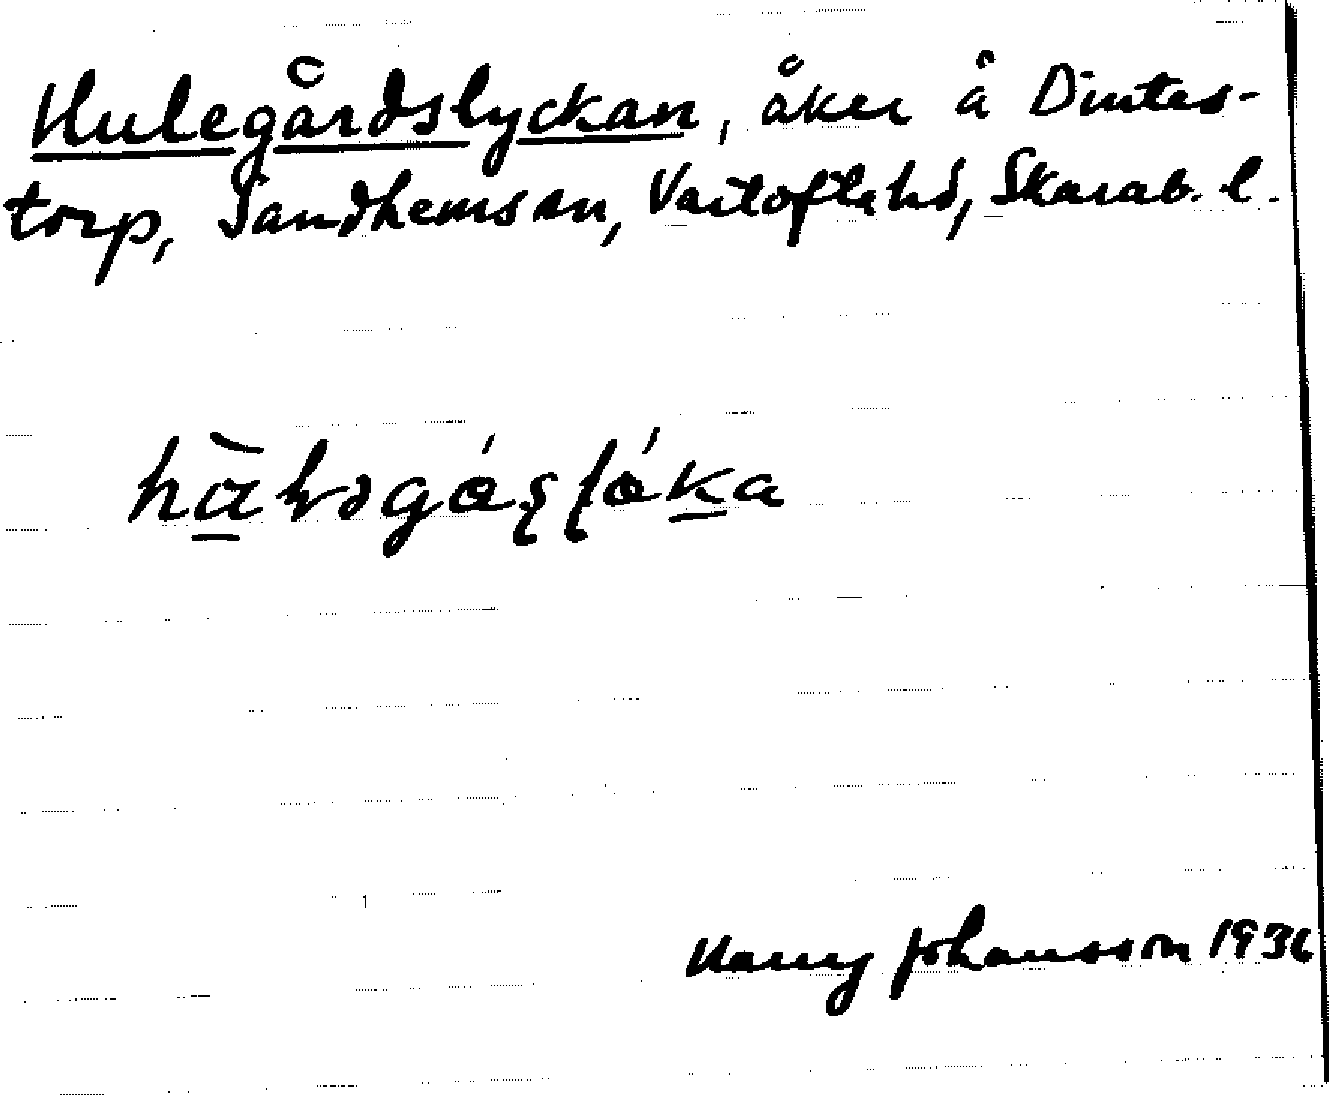 Hulegårdslyckan, åker å Dintes-
torp, Sandhems sn, Vartofta hd, Skarab. l.
Harry Johansson 1936